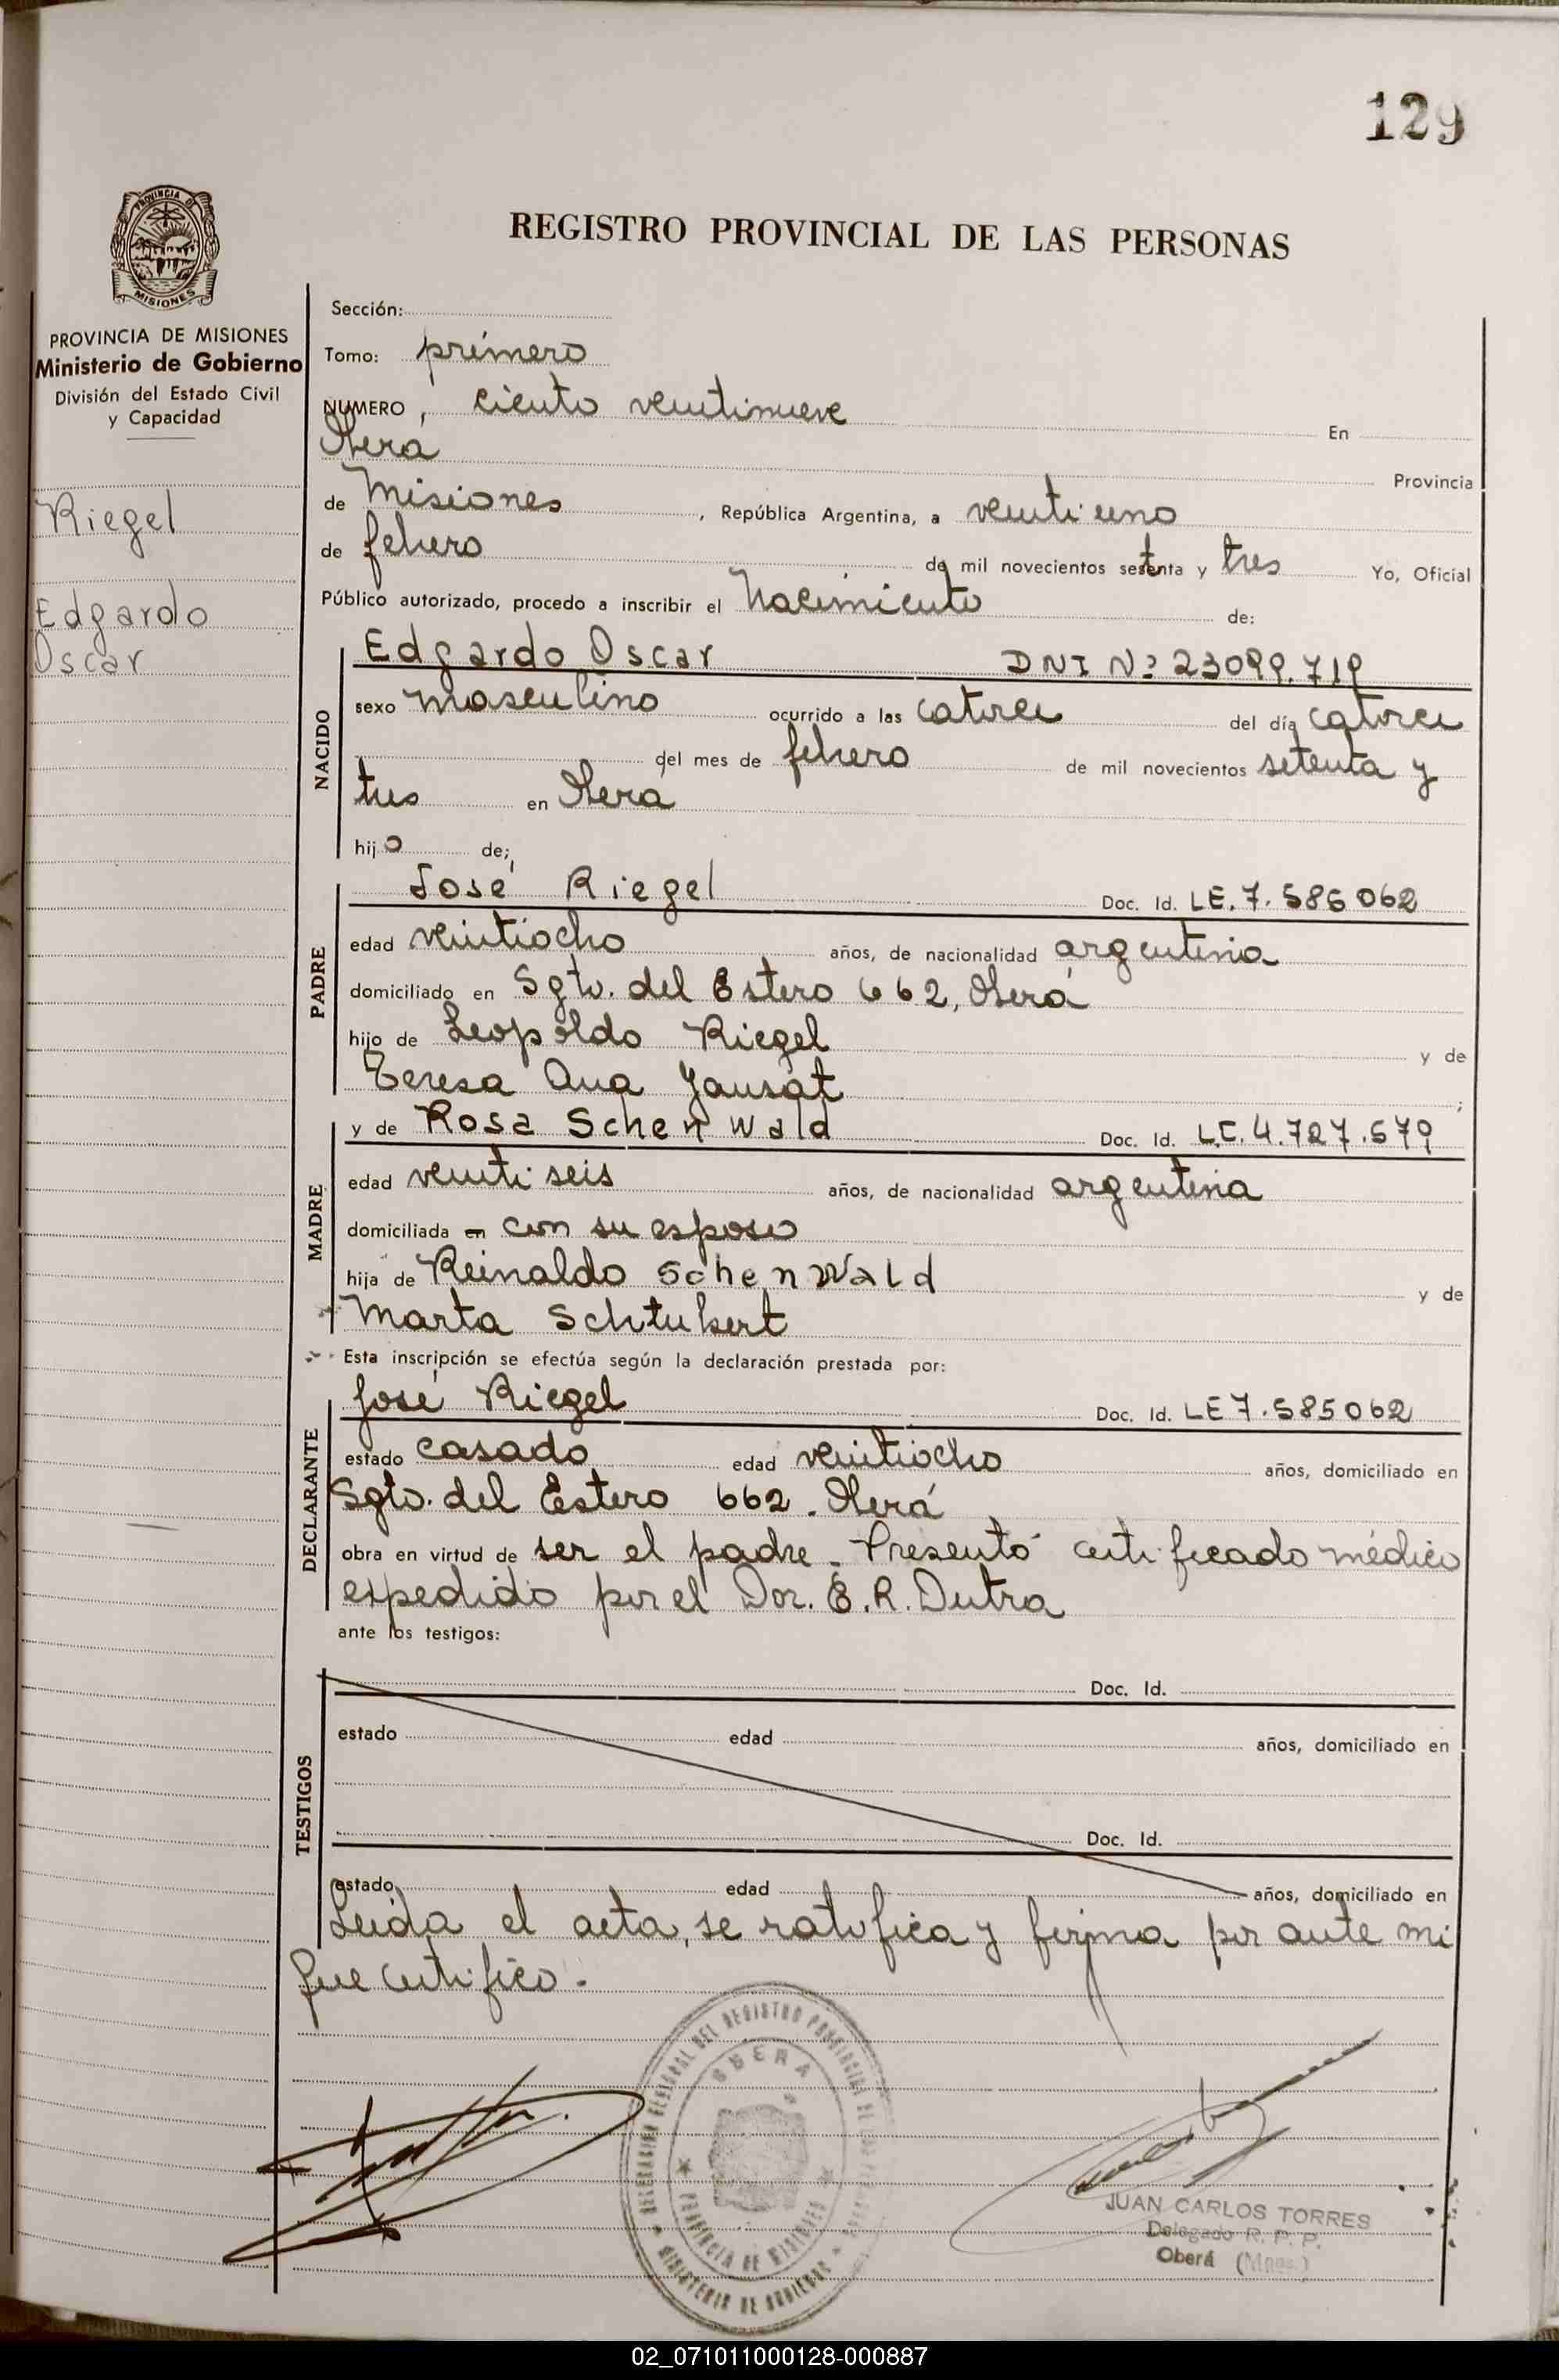 129
PROVINCIA DE
MISIONES
REGISTRO PROVINCIAL DE LAS PERSONAS
PROVINCIA DE MISIONES
Ministerio de Gobierno
División del Estado Civil
y Capacidad
Riegel
Edgardo
Oscar
Sección:
Tomo: primero
NUMERO, ciento veintinueve En
Oberá Provincia
de Misiones, República Argentina, a veintiuno
de febrero de mil novecientos setenta y tres Yo, Oficial
Público autorizado, procedo a inscribir el Nacimiento de:
NACIDO
Edgardo Oscar DNI Nº 23099.719
sexo masculino ocurrido a las catorce del día catorce
del mes de febrero de mil novecientos setenta y
tres en Oberá
hijo de;
PADRE
José Riegel Doc. Id. LE. 7. 585 062
edad veintiocho años, de nacionalidad argentina
domiciliado en Sgto. del Estero 662, Oberá
hijo de Leopoldo Riegel y de
Teresa Ana Jausat;
MADRE
y de Rosa Schenwald Doc. Id. L.C. 4.727.579
edad veintiseis años, de nacionalidad argentina
domiciliada en con su esposo
hija de Reinaldo Schenwald y de
Marta Schtubert
Esta inscripción se efectúa según la declaración prestada por:
DECLARANTE
José Riegel Doc. Id. LE 7.585062
estado casado edad veintiocho años, domiciliado en
Sgto. del Estero 662. Oberá
obra en virtud de ser el padre. Presentó certificado médico
expedido por el Dor. E. R. Dutra
ante los testigos:
TESTIGOS
Doc. Id.
estado edad años, domiciliado en
Doc. Id.
estado edad años, domiciliado en
Leida el acta, se ratifica y firma por ante mi
que certifico.
DELEGACION GENERAL DEL REGISTRO PROVINCIAL DE LAS
OBERA
PROVINCIA DE MISIONES
MINISTERIO DE GOBIERNO
JUAN CARLOS TORRES
Delegado R. P. P.
Oberá (Mnes.)
02_071011000128-000887